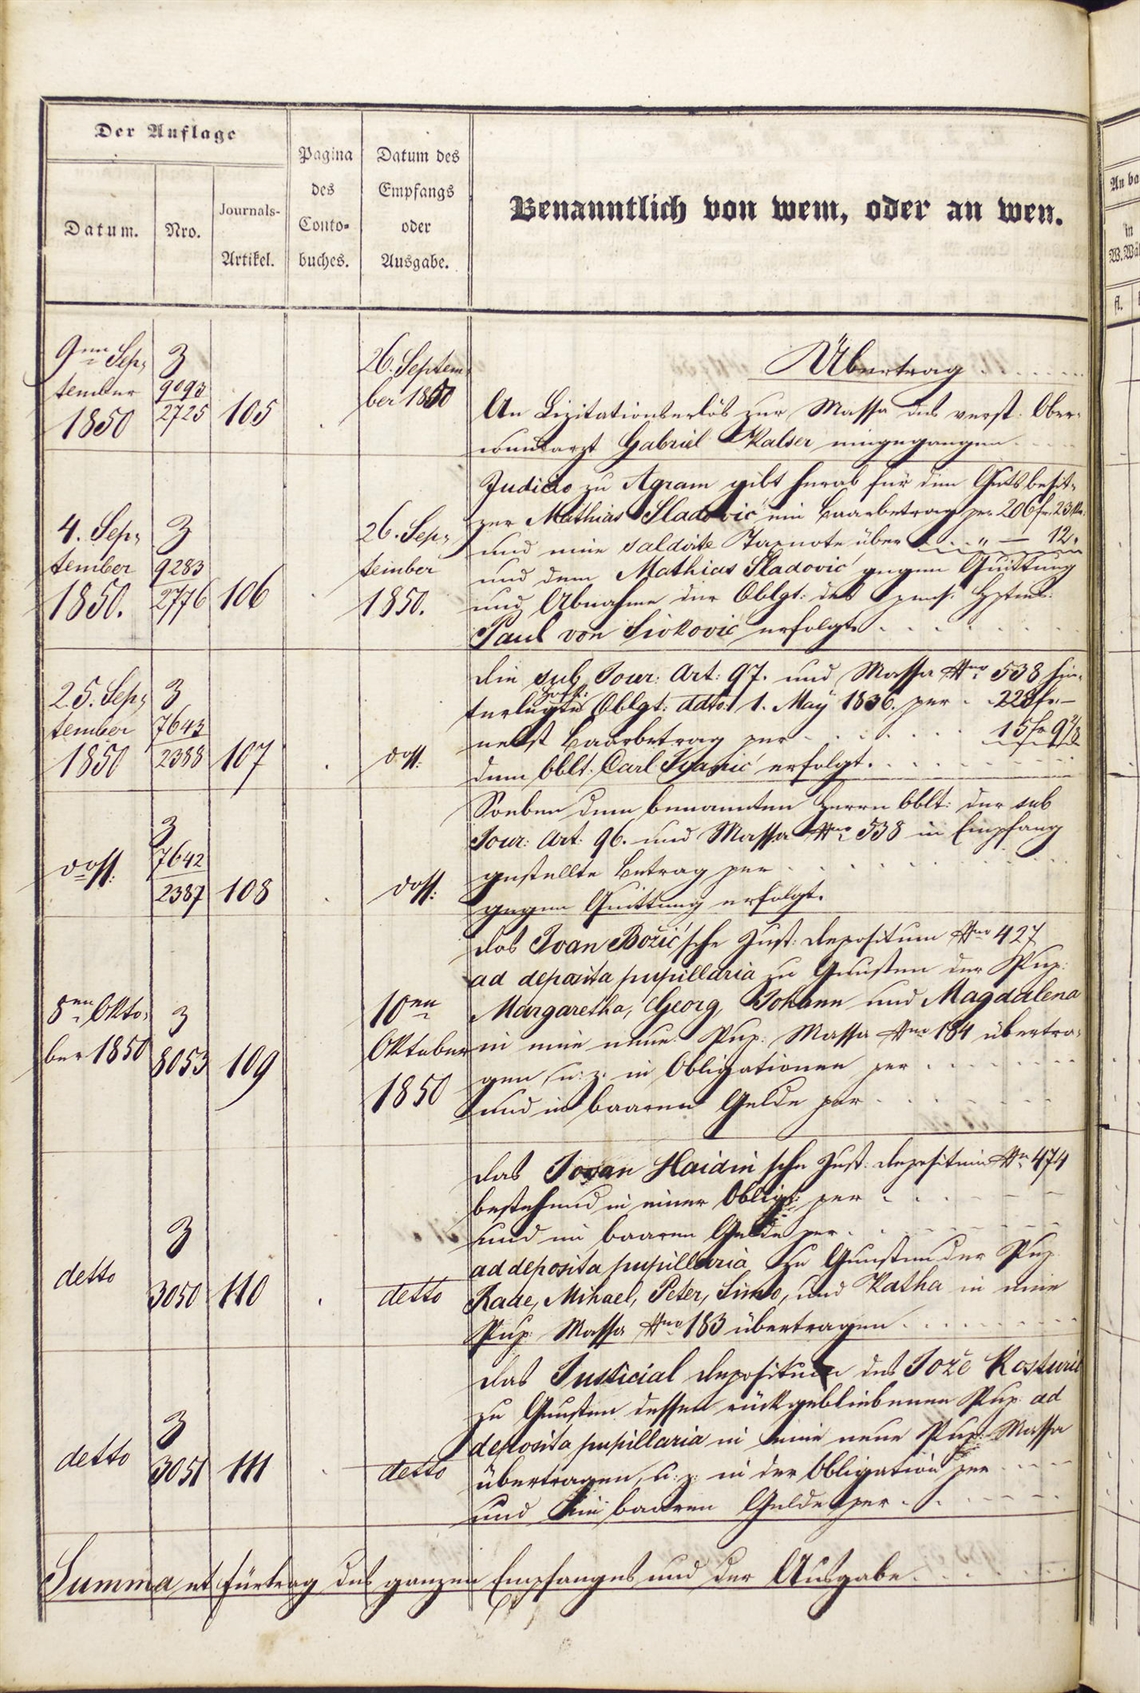 Der Auflage
Datum.
Nro.
Journals-
Artikel.
Pagina
des
Conto-
buches.
Datum des
Empfangs
oder
Ausgabe.
Benanntlich von wem, oder an wen.
Übertrag
9ten Sep-
tember
1850
3
9093
2725
105
26. Septem-
ber 1850
An Lizitationserlös zur Massa des verst. Ober-
wundarzt Gabriel Kalser eingegangen
4. Sep-
tember
1850.
3
9283
2776
106
26. Sep-
tember
1850.
Judicio zu Agram gibt herab für den Gutsbesit-
zer Mathias Sladović ein Baarbetrag per 206 fr 23 kr.
und eine saldirte Taxnote über " — 12 "
und dem Mathias Sladović gegen Quittung
und Abnahme der Oblgt: des Hptm.
Paul von Sivković erfolgt.
25. Sep-
tember
1850
3
7643
2388
107
dott.
Die sub Jour: Art: 97. und Massa Nro 538 hin-
terlegte Oblgt: ddto: 1. May 1836. per 228 fr —
nebst Baarbetrag per 15 fr 9 2/8
dem Oblt. Carl Ivanić erfolgt.
dott.
3
7642
2387
108
dott:
Soeben dem benannten Herrn Oblt: der sub
Jour: Art: 96. und Massa Nro 538 in Empfang
gestellte Betrag per
gegen Quittung erfolgt.
8ten Okto-
ber 1850
3
8053
109
10ten
Oktober
1850
Das Ivan Božić'sche Just: Depositum Nro 427
ad deposita pupillaria zu Gunsten der Pup:
Margaretha, Georg, Johann und Magdalena
in eine neue Pup: Massa Nro 184 übertra-
gen, u: z: in Obligationen per
und in baarem Gelde per
detto
3
3050
110
detto
Das Jovan Haidin'sche Just: Depositum Nro 474
bestehend in einer Obligt: per
und im baaren Gelde per
ad deposita pupillaria zu Gunsten der Pup.
Rade, Mihael, Peter, Simo, und Katha in eine
Pup: Massa Nro 183 übertragen
detto
3
3051
111
detto
Das Judicial Depositum des Jože Kosturić
zu Gunsten dessen rückgebliebenen Pup: ad
deposita pupillaria in eine neue Pup: Massa
übertragen, u: z: in der Obligation per
und im baaren Gelde per
Summa et Fürtrag des ganzen Empfanges und der Ausgabe
An ba
in
W. Wä
fl.